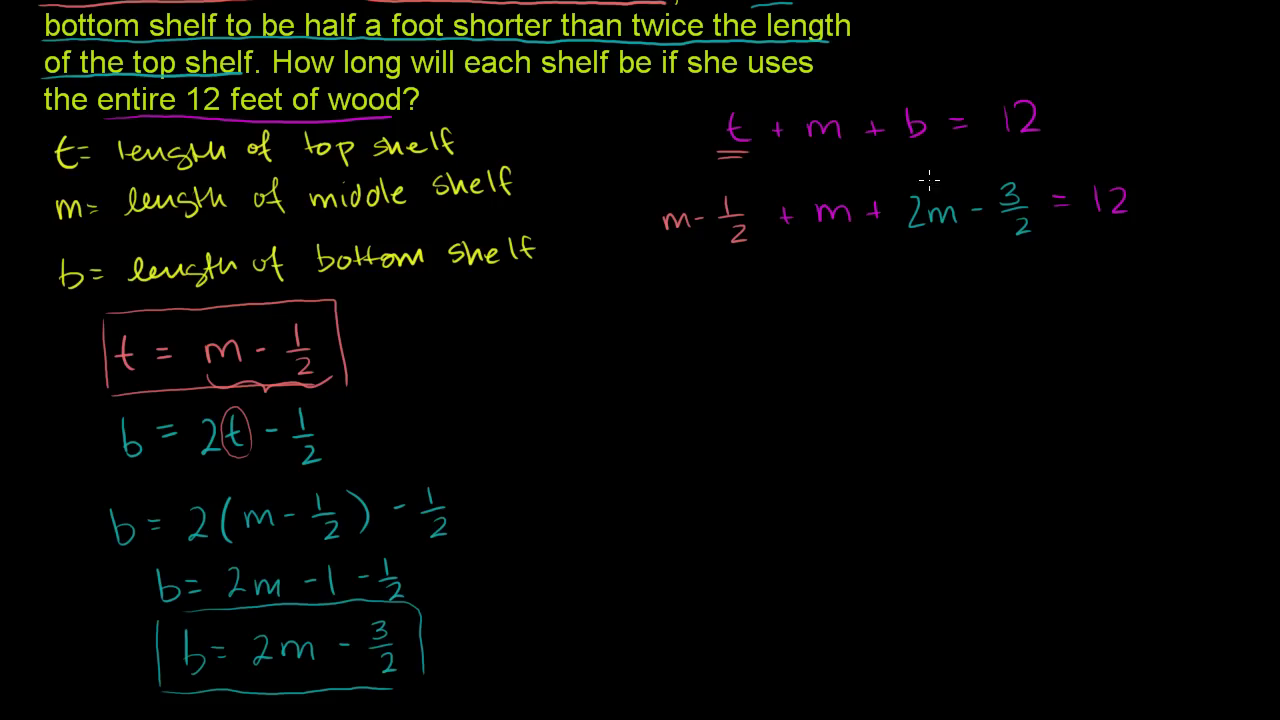 bottom shelf to be half a foot shorter than twice the length
of the top shelf. How long will each shelf be if she uses
the entire 12 feet of wood?
t= length of top shelf
m= length of middle shelf
b= length of bottom shelf
t = m - 1/2
b = 2t - 1/2
b = 2(m - 1/2) - 1/2
b = 2m - 1 - 1/2
b = 2m - 3/2
t + m + b = 12
m - 1/2 + m + 2m - 3/2 = 12